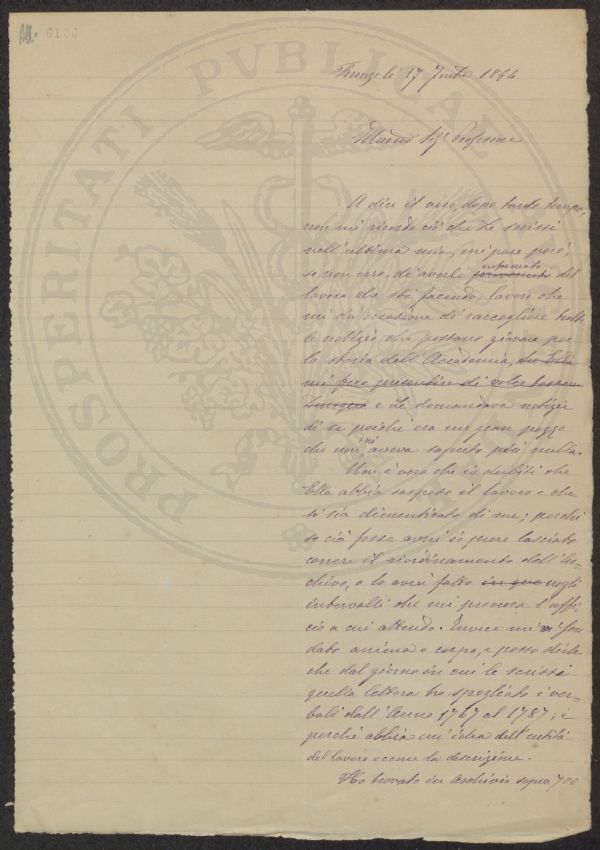 PROSPERITATI PVBLICAE
Firenze li 27 1894
Professore
A dire il vero, dopo tanto tempo,
non mi ricordo ciò che Le scrissi
nell'ultima mia, mi pare però,
se non erro, di averla informata del
lavoro che sto facendo, lavoro che
mi dà occasione di raccogliere tutte
le notizie che possono giovare per
la storia dell'Accademia, che Ella
mi fece di voler
e Le domandava notizie
di se poichè era un gran pezzo
che non ne aveva saputo più nulla.
Non è vero che io dubiti che
Ella abbia sospeso il lavoro e che
si sia dimenticato di me; perchè
se ciò fosse avrei io pure lasciato
correre il riordinamento dell'Ar-
chivio, o lo avrei fatto in que negli
intervalli che mi procura l'uffi-
cio a cui attendo. Invece mi ci son
dato anima e corpo, e posso dirle
che dal giorno in cui le scrissi
quella lettera ho spogliato i ver-
bali dall'Anno 1767 al 1787; e
perchè abbia un'idea dell'entità
del lavoro eccone la descrizione.
Ho trovato in Archivio sopra 700